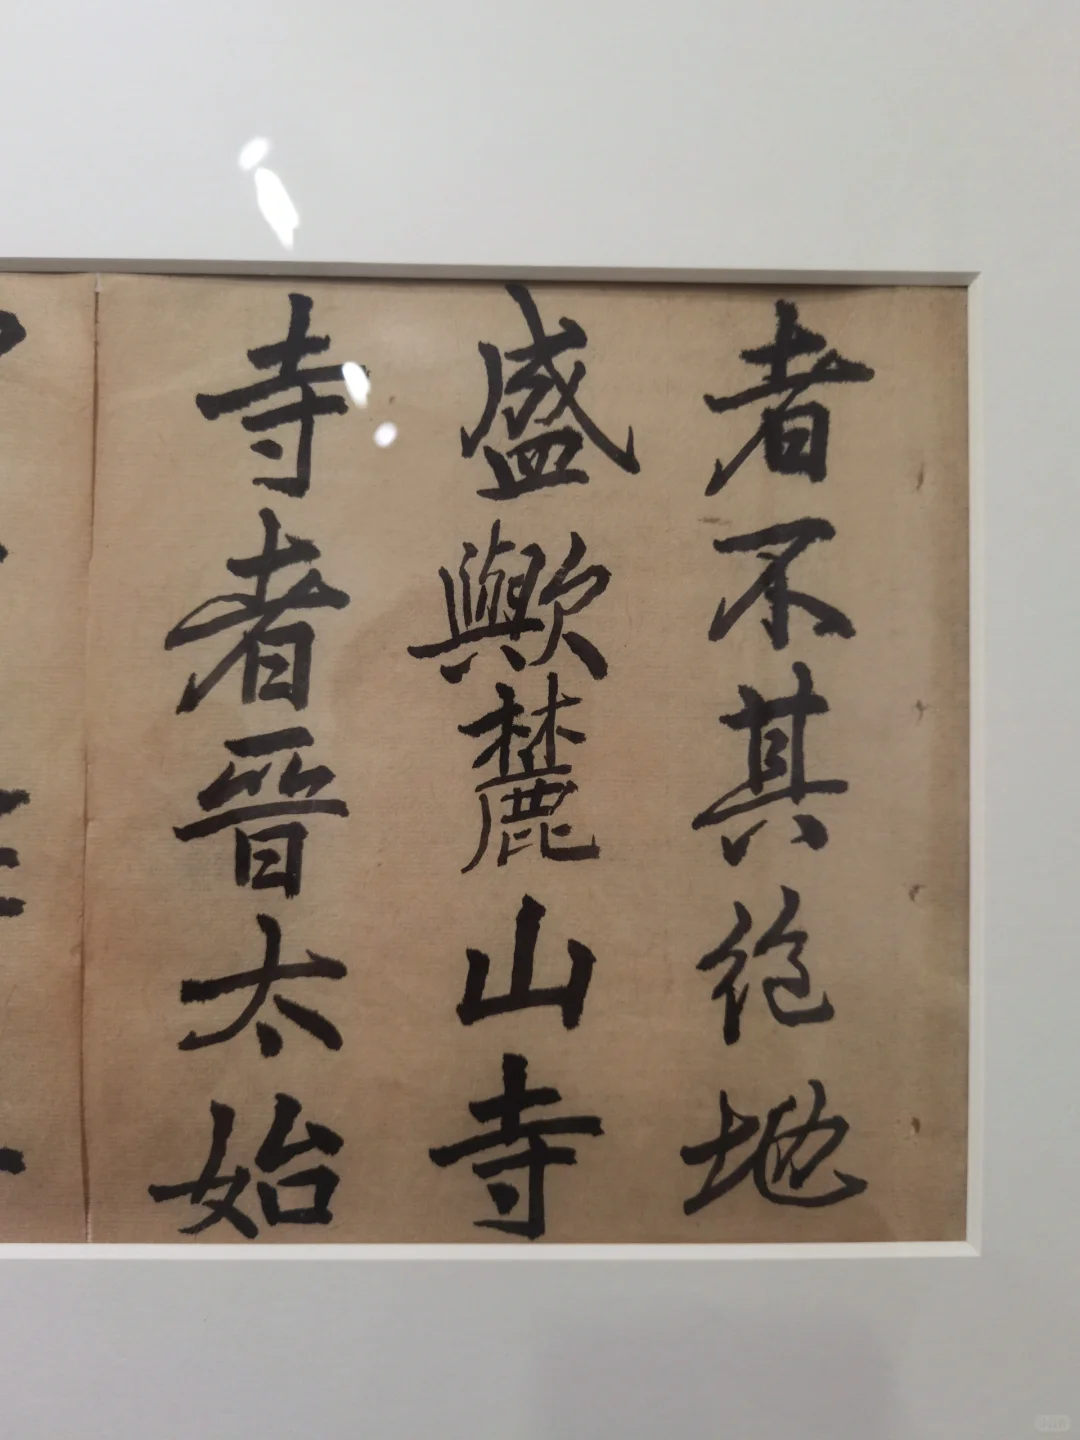 者不其絶地
盛歟麓山寺
寺者晉太始